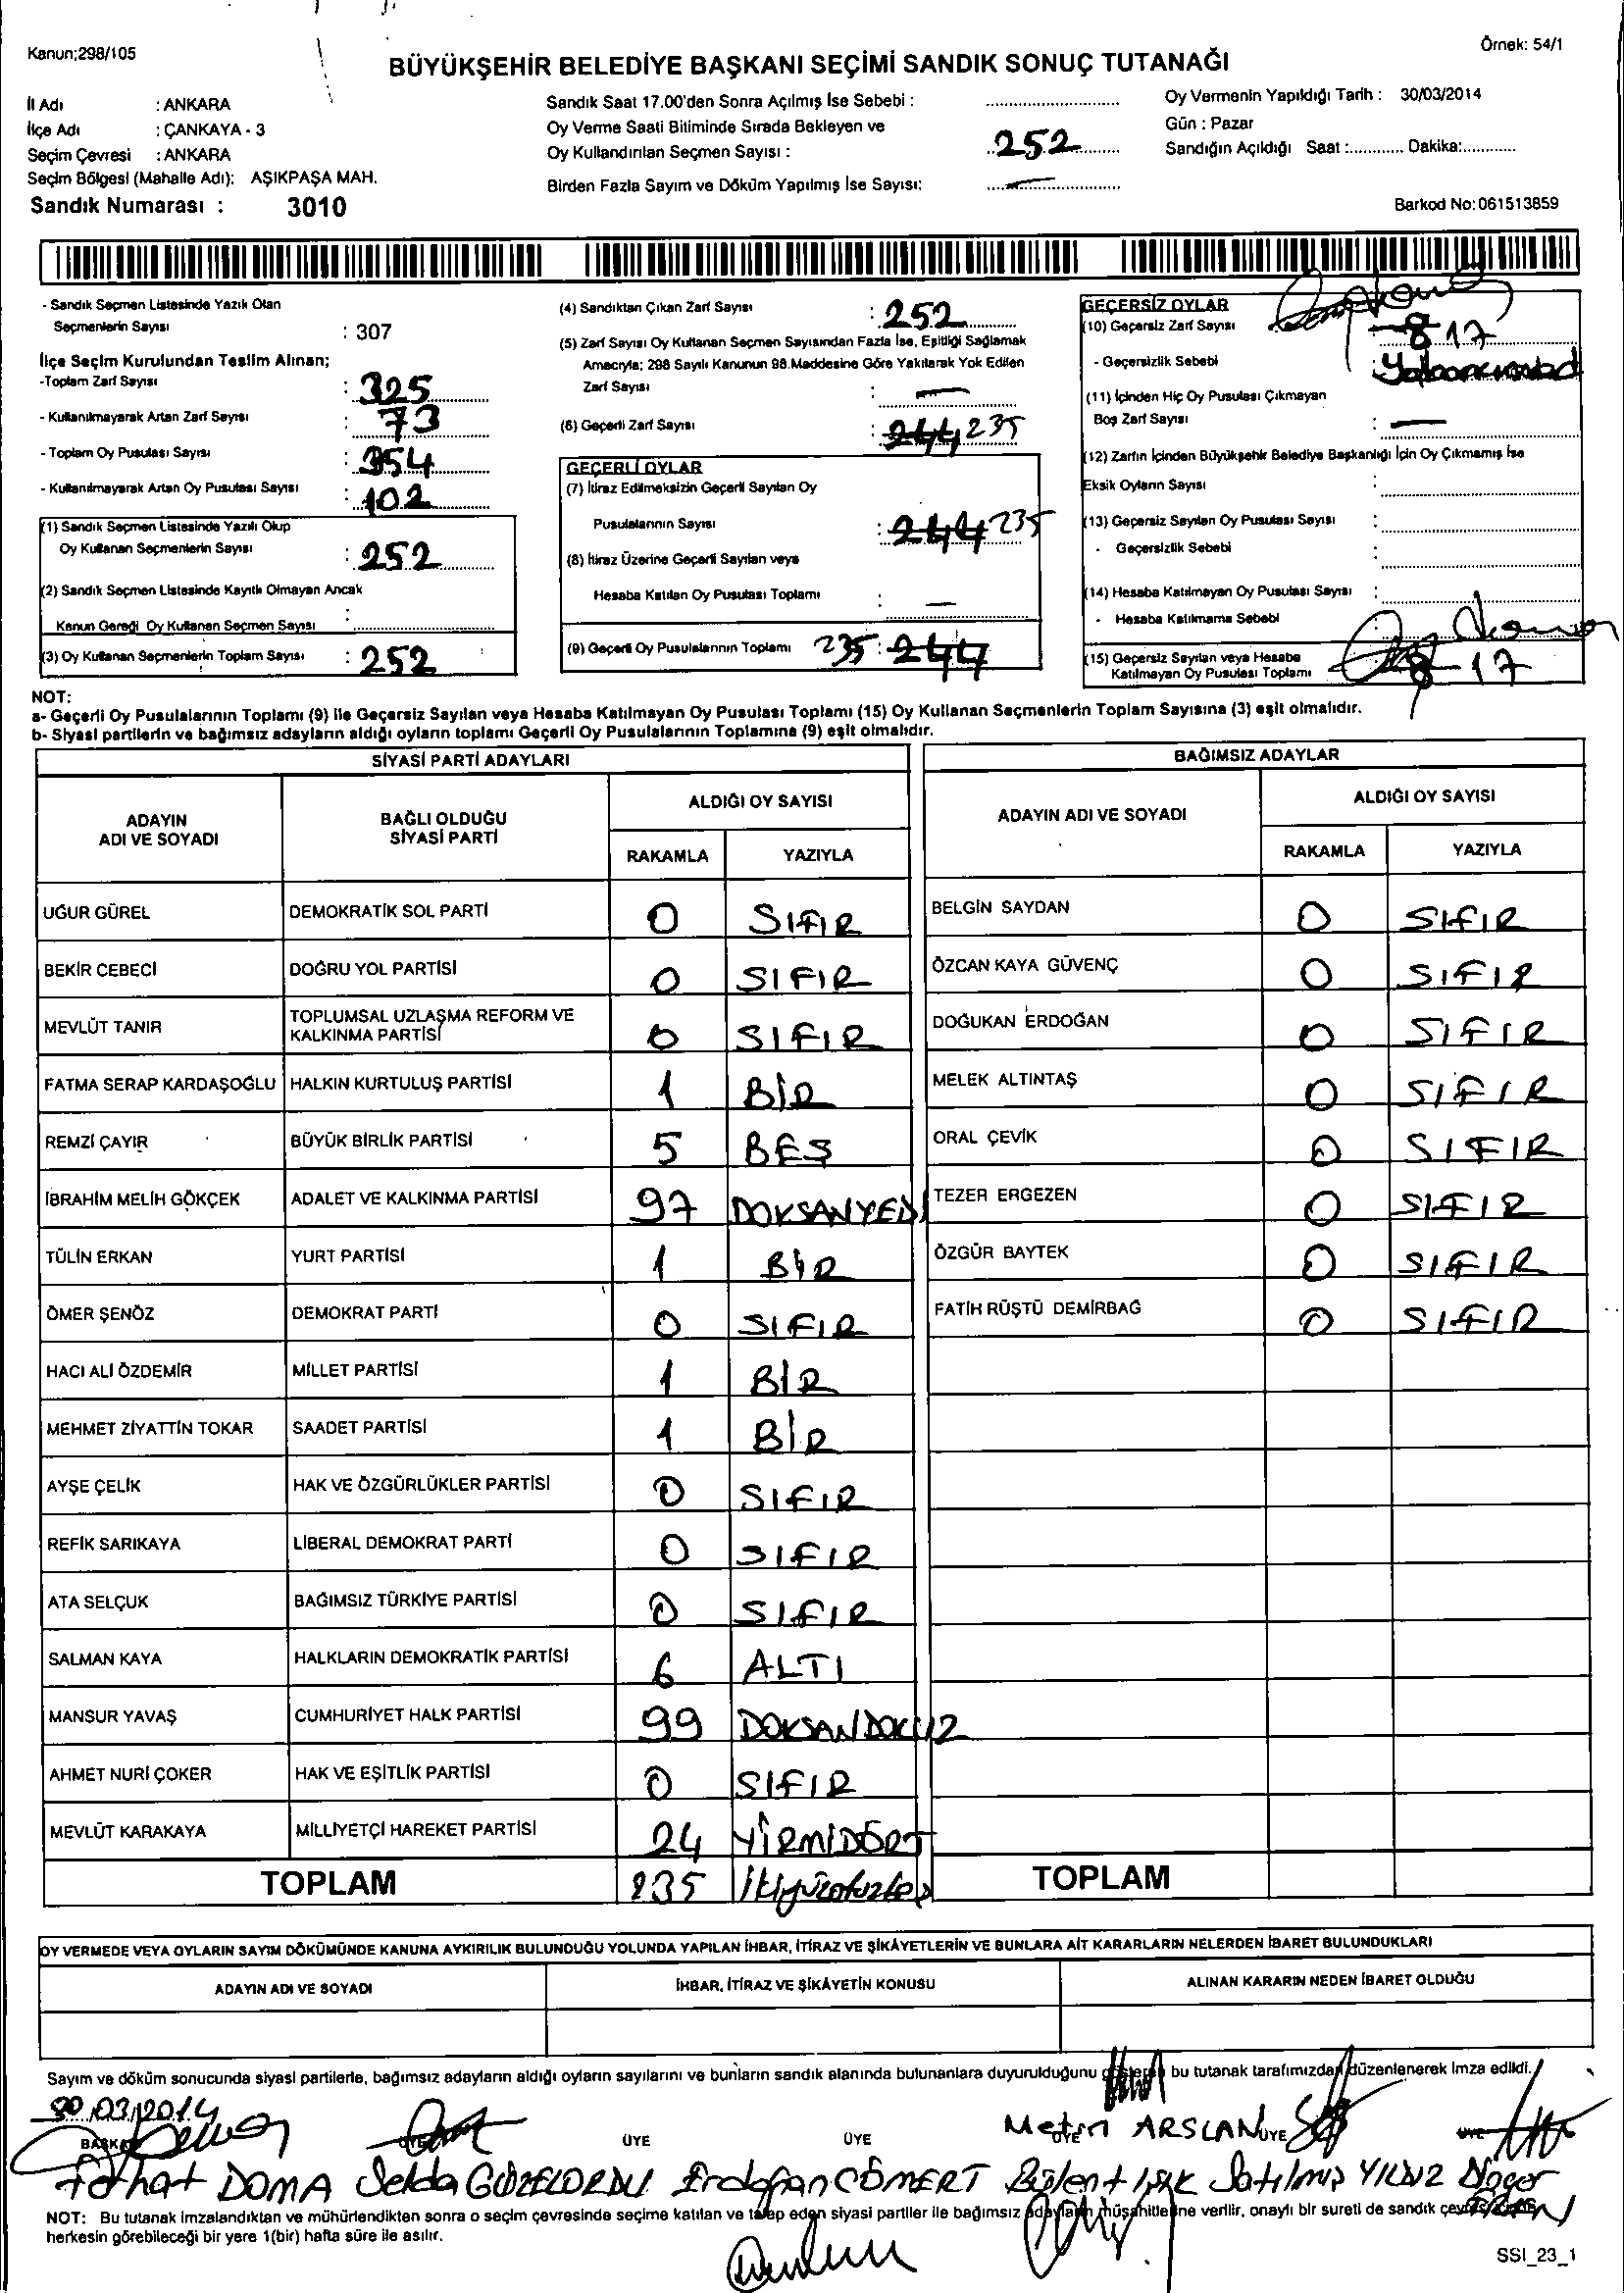 Kanun;298/105
Örnek: 54/1
BÜYÜKŞEHİR BELEDİYE BAŞKANI SEÇİMİ SANDIK SONUÇ TUTANAĞI
İl Adı : ANKARA
İlçe Adı : ÇANKAYA - 3
Seçim Çevresi : ANKARA
Seçim Bölgesi (Mahalle Adı): AŞIKPAŞA MAH.
Sandık Numarası : 3010
Sandık Saat 17.00'den Sonra Açılmış İse Sebebi :
Oy Verme Saati Bitiminde Sırada Bekleyen ve
Oy Kullandırılan Seçmen Sayısı : 252
Birden Fazla Sayım ve Döküm Yapılmış İse Sayısı: —
Oy Vermenin Yapıldığı Tarih : 30/03/2014
Gün : Pazar
Sandığın Açıldığı Saat :............ Dakika:............
Barkod No:061513859
- Sandık Seçmen Listesinde Yazılı Olan
Seçmenlerin Sayısı : 307
İlçe Seçim Kurulundan Teslim Alınan;
-Toplam Zarf Sayısı : 325
- Kullanılmayarak Artan Zarf Sayısı : 73
- Toplam Oy Pusulası Sayısı : 354
- Kullanılmayarak Artan Oy Pusulası Sayısı : 102
(1) Sandık Seçmen Listesinde Yazılı Olup
Oy Kullanan Seçmenlerin Sayısı : 252
(2) Sandık Seçmen Listesinde Kayıtlı Olmayan Ancak
Kanun Gereği Oy Kullanan Seçmen Sayısı :
(3) Oy Kullanan Seçmenlerin Toplam Sayısı : 252
(4) Sandıktan Çıkan Zarf Sayısı : 252
(5) Zarf Sayısı Oy Kullanan Seçmen Sayısından Fazla İse, Eşitliği Sağlamak
Amacıyla; 298 Sayılı Kanunun 98.Maddesine Göre Yakılarak Yok Edilen
Zarf Sayısı : —
(6) Geçerli Zarf Sayısı : 244 235
GEÇERLİ OYLAR
(7) İtiraz Edilmeksizin Geçerli Sayılan Oy
Pusulalarının Sayısı : 244 235
(8) İtiraz Üzerine Geçerli Sayılan veya
Hesaba Katılan Oy Pusulası Toplamı : —
(9) Geçerli Oy Pusulalarının Toplamı 235 : 244
GEÇERSİZ OYLAR
(10) Geçersiz Zarf Sayısı 8 17
- Geçersizlik Sebebi
(11) İçinden Hiç Oy Pusulası Çıkmayan
Boş Zarf Sayısı : —
(12) Zarfın İçinden Büyükşehir Belediye Başkanlığı İçin Oy Çıkmamış İse
Eksik Oyların Sayısı :
(13) Geçersiz Sayılan Oy Pusulası Sayısı :
- Geçersizlik Sebebi :
(14) Hesaba Katılmayan Oy Pusulası Sayısı :
- Hesaba Katılmama Sebebi :
(15) Geçersiz Sayılan veya Hesaba
Katılmayan Oy Pusulası Toplamı : 8 17
NOT:
a- Geçerli Oy Pusulalarının Toplamı (9) ile Geçersiz Sayılan veya Hesaba Katılmayan Oy Pusulası Toplamı (15) Oy Kullanan Seçmenlerin Toplam Sayısına (3) eşit olmalıdır.
b- Siyasi partilerin ve bağımsız adayların aldığı oyların toplamı Geçerli Oy Pusulalarının Toplamına (9) eşit olmalıdır.
SİYASİ PARTİ ADAYLARI
ADAYIN ADI VE SOYADI BAĞLI OLDUĞU SİYASİ PARTİ ALDIĞI OY SAYISI
RAKAMLA YAZIYLA
UĞUR GÜREL DEMOKRATİK SOL PARTİ 0 SIFIR
BEKİR CEBECİ DOĞRU YOL PARTİSİ 0 SIFIR
MEVLÜT TANIR TOPLUMSAL UZLAŞMA REFORM VE KALKINMA PARTİSİ 0 SIFIR
FATMA SERAP KARDAŞOĞLU HALKIN KURTULUŞ PARTİSİ 1 BİR
REMZİ ÇAYIR BÜYÜK BİRLİK PARTİSİ 5 BEŞ
İBRAHİM MELİH GÖKÇEK ADALET VE KALKINMA PARTİSİ 97 DOKSANYEDİ
TÜLİN ERKAN YURT PARTİSİ 1 BİR
ÖMER ŞENÖZ DEMOKRAT PARTİ 0 SIFIR
HACI ALİ ÖZDEMİR MİLLET PARTİSİ 1 BİR
MEHMET ZİYATTİN TOKAR SAADET PARTİSİ 1 BİR
AYŞE ÇELİK HAK VE ÖZGÜRLÜKLER PARTİSİ 0 SIFIR
REFİK SARIKAYA LİBERAL DEMOKRAT PARTİ 0 SIFIR
ATA SELÇUK BAĞIMSIZ TÜRKİYE PARTİSİ 0 SIFIR
SALMAN KAYA HALKLARIN DEMOKRATİK PARTİSİ 6 ALTI
MANSUR YAVAŞ CUMHURİYET HALK PARTİSİ 99 DOKSANDOKUZ
AHMET NURİ ÇOKER HAK VE EŞİTLİK PARTİSİ 0 SIFIR
MEVLÜT KARAKAYA MİLLİYETÇİ HAREKET PARTİSİ 24 YİRMİDÖRT
TOPLAM 235 ikiyüzotuzbeş
BAĞIMSIZ ADAYLAR
ADAYIN ADI VE SOYADI ALDIĞI OY SAYISI
RAKAMLA YAZIYLA
BELGİN SAYDAN 0 SIFIR
ÖZCAN KAYA GÜVENÇ 0 SIFIR
DOĞUKAN ERDOĞAN 0 SIFIR
MELEK ALTINTAŞ 0 SIFIR
ORAL ÇEVİK 0 SIFIR
TEZER ERGEZEN 0 SIFIR
ÖZGÜR BAYTEK 0 SIFIR
FATİH RÜŞTÜ DEMİRBAĞ 0 SIFIR
TOPLAM
OY VERMEDE VEYA OYLARIN SAYIM DÖKÜMÜNDE KANUNA AYKIRILIK BULUNDUĞU YOLUNDA YAPILAN İHBAR, İTİRAZ VE ŞİKÂYETLERİN VE BUNLARA AİT KARARLARIN NELERDEN İBARET BULUNDUKLARI
ADAYIN ADI VE SOYADI İHBAR, İTİRAZ VE ŞİKÂYETİN KONUSU ALINAN KARARIN NEDEN İBARET OLDUĞU
Sayım ve döküm sonucunda siyasi partilerle, bağımsız adayların aldığı oyların sayılarını ve bunların sandık alanında bulunanlara duyurulduğunu gösteren bu tutanak tarafımızdan düzenlenerek imza edildi.
30.03/2014
BAŞKAN ÜYE ÜYE ÜYE ÜYE ÜYE ÜYE
Metin ARSLAN
Ferhat DOMA Selda GÜZELORDU Erdoğan CÖMERT Bülent IŞIK Satılmış YILDIZ
NOT: Bu tutanak imzalandıktan ve mühürlendikten sonra o seçim çevresinde seçime katılan ve talep eden siyasi partiler ile bağımsız adayların müşahitlerine verilir, onaylı bir sureti de sandık
herkesin görebileceği bir yere 1(bir) hafta süre ile asılır.
SSI_23_1